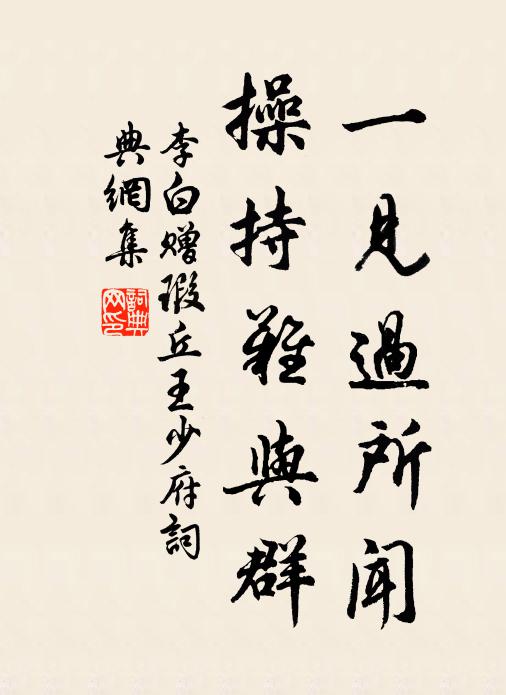 一見過所聞
操持難與群
李白贈瑕丘王少府詞
典網集
詞典網印